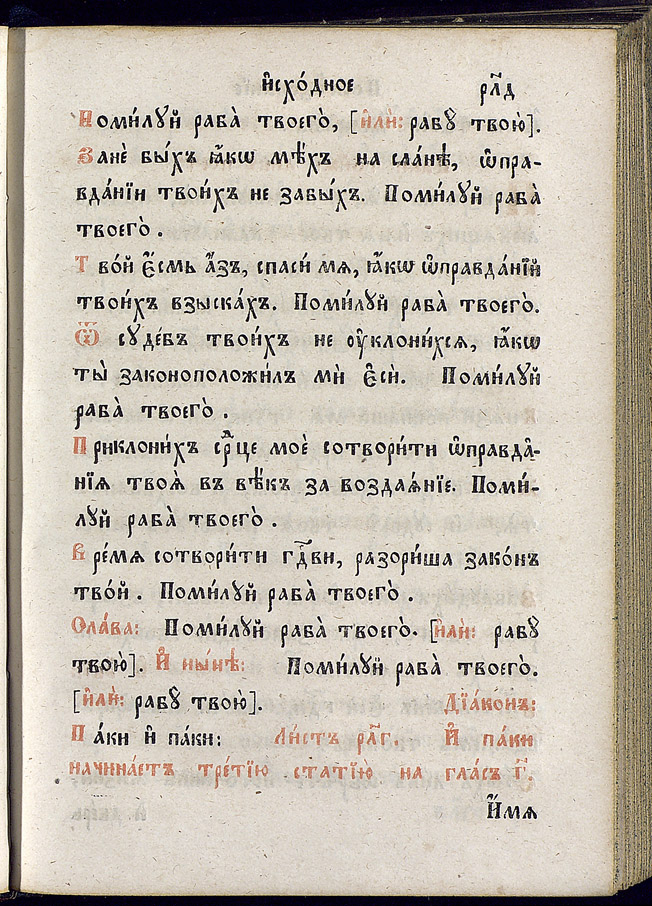 и҆схо́дное рл҃д
Поми́лꙋй раба̀ твоего̀, [и҆лѝ: рабꙋ̀ твою̀].
Занѐ бы́хъ ꙗ҆́кѡ мѣ́хъ на сла́нѣ, ѡ҆пра-
вда́нїи твои́хъ не забы́хъ. Поми́лꙋй раба̀
твоего̀.
Тво́й є҆́смь а҆́зъ, спаси́ мѧ, ꙗ҆́кѡ ѡ҆правда́нїй
твои́хъ взыска́хъ. Поми́лꙋй раба̀ твоего̀.
Ѿ сꙋде́бъ твои́хъ не ᲂу҆клони́хсѧ, ꙗ҆́кѡ
ты̀ законоположи́лъ мѝ є҆сѝ. Поми́лꙋй
раба̀ твоего̀.
Приклони́хъ срⷣце моѐ сотвори́ти ѡ҆правда̑-
нїѧ твоѧ̑ въ вѣ́къ за воздаѧ́нїе. Поми́-
лꙋй раба̀ твоего̀.
Вре́мѧ сотвори́ти гдⷭ҇ви, разори́ша зако́нъ
тво́й. Поми́лꙋй раба̀ твоего̀.
Сла́ва: Поми́лꙋй раба̀ твоего̀. [и҆лѝ: рабꙋ̀
твою̀]. И҆ ны́нѣ: Поми́лꙋй раба̀ твоего̀.
[и҆лѝ: рабꙋ̀ твою̀]. Дїа́конъ:
Па́ки и҆ па́ки: Ли́стъ рл҃г. И҆ па́ки
начина́етъ тре́тїю статїю̀ на гла́съ г҃.
И҆́мѧ